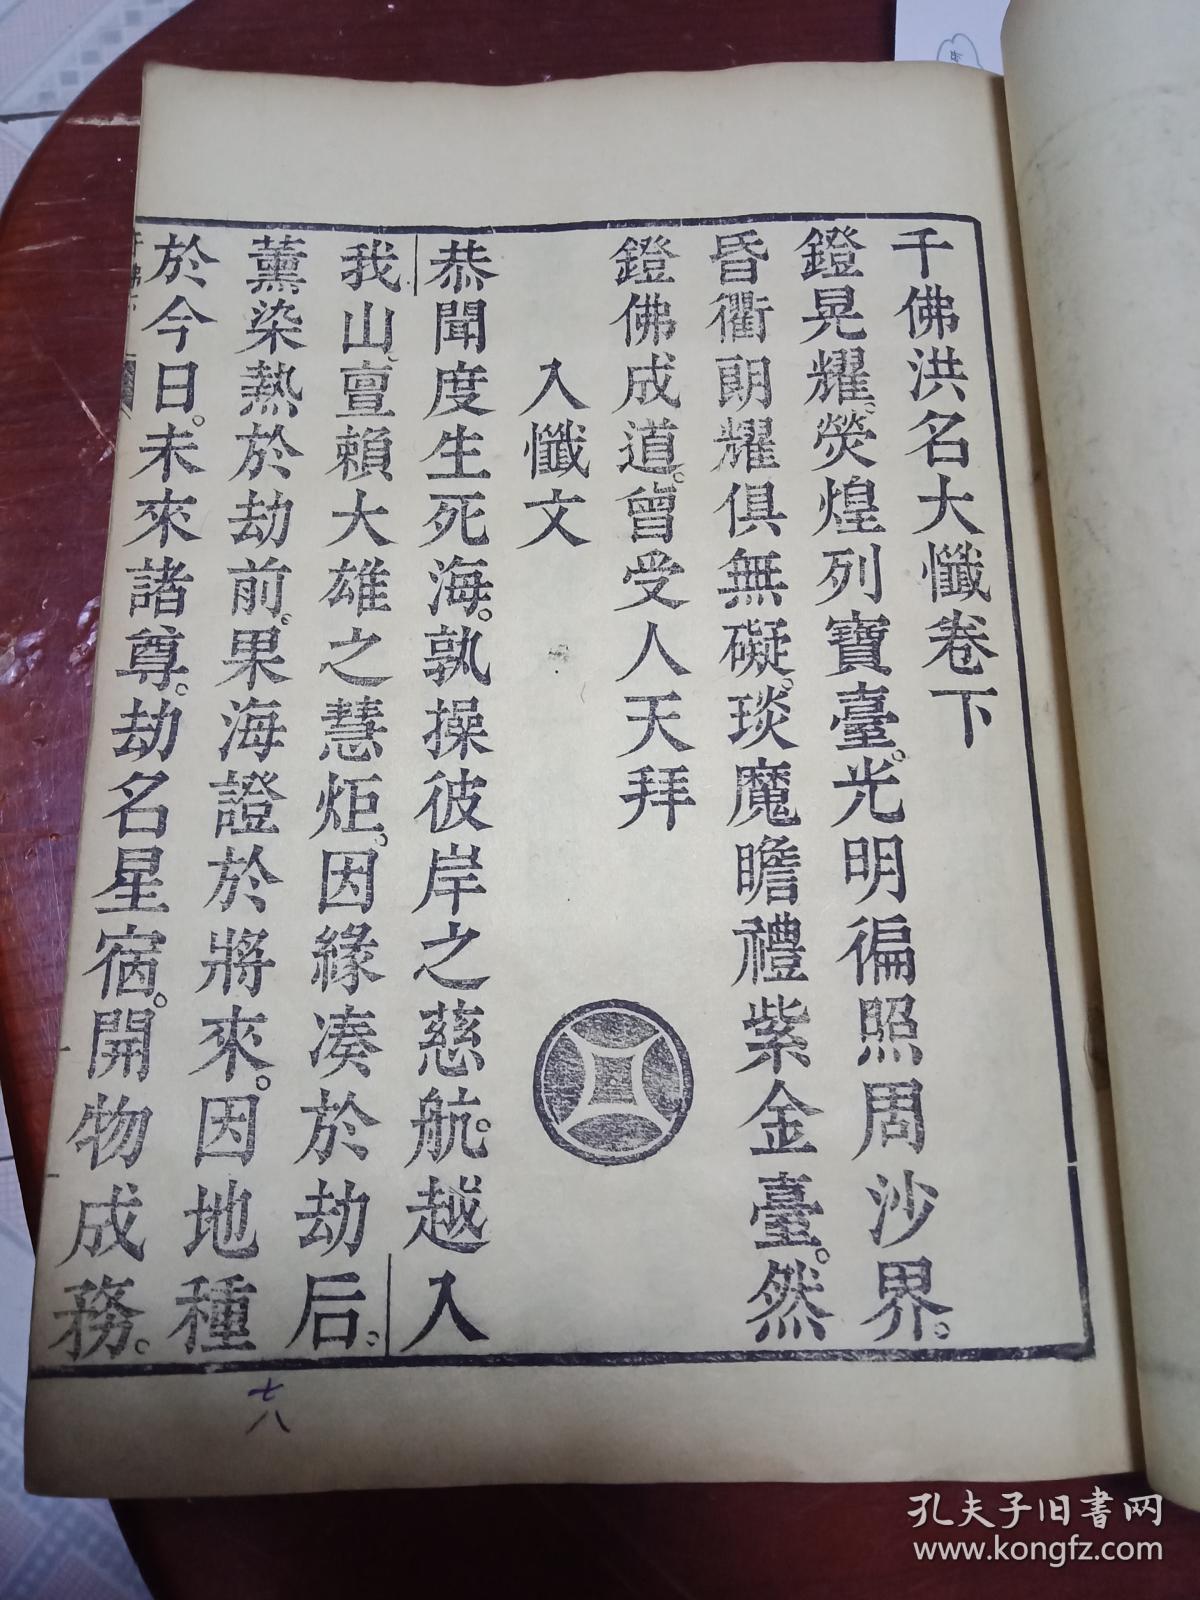 千佛洪名大懺卷下
鐙晃耀。熒煌列寶臺。光明徧照周沙界。
昏衢朗耀俱無礙。琰魔瞻禮紫金臺。然
鐙佛成道。曾受人天拜
入懺文
恭聞度生死海。孰操彼岸之慈航。越入
我山。亶賴大雄之慧炬。因緣湊於劫后。
薰染熱於劫前。果海證於將來。因地種
於今日。未來諸尊。劫名星宿。開物成務。
七八
孔夫子旧书网
www.kongfz.com